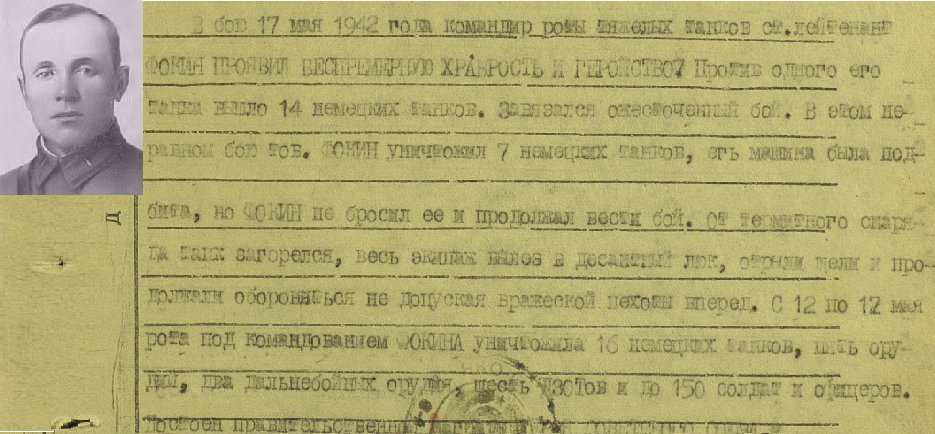 В бою 17 мая 1942 года командир роты тяжелых танков ст.лейтенант
ФОКИН ПРОЯВИЛ БЕСПРЕМЕРНУЮ ХРАБРОСТЬ И ГЕРОЙСТВО? Против одного его
танка вышло 14 немецких танков. Завязался ожесточенный бой. В этом не-
равном бою тов. ФОКИН уничтожил 7 немецких танков, егъ машина была под-
бита, но ФОКИН не бросил ее и продолжал вести бой. От термитного снаря-
да танк загорелся, весь экипаж вылез в десантный люк, отрыли щели и про-
должали обороняться не допуская вражеской пехоты вперед. С 12 по 17 мая
рота под командованием ФОКИНА уничтожила 16 немецких танков, пять ору-
дий, два дальнебойных орудия, шесть ДЗОТов и до 150 солдат и офицеров.
Достоен правительственной
Д